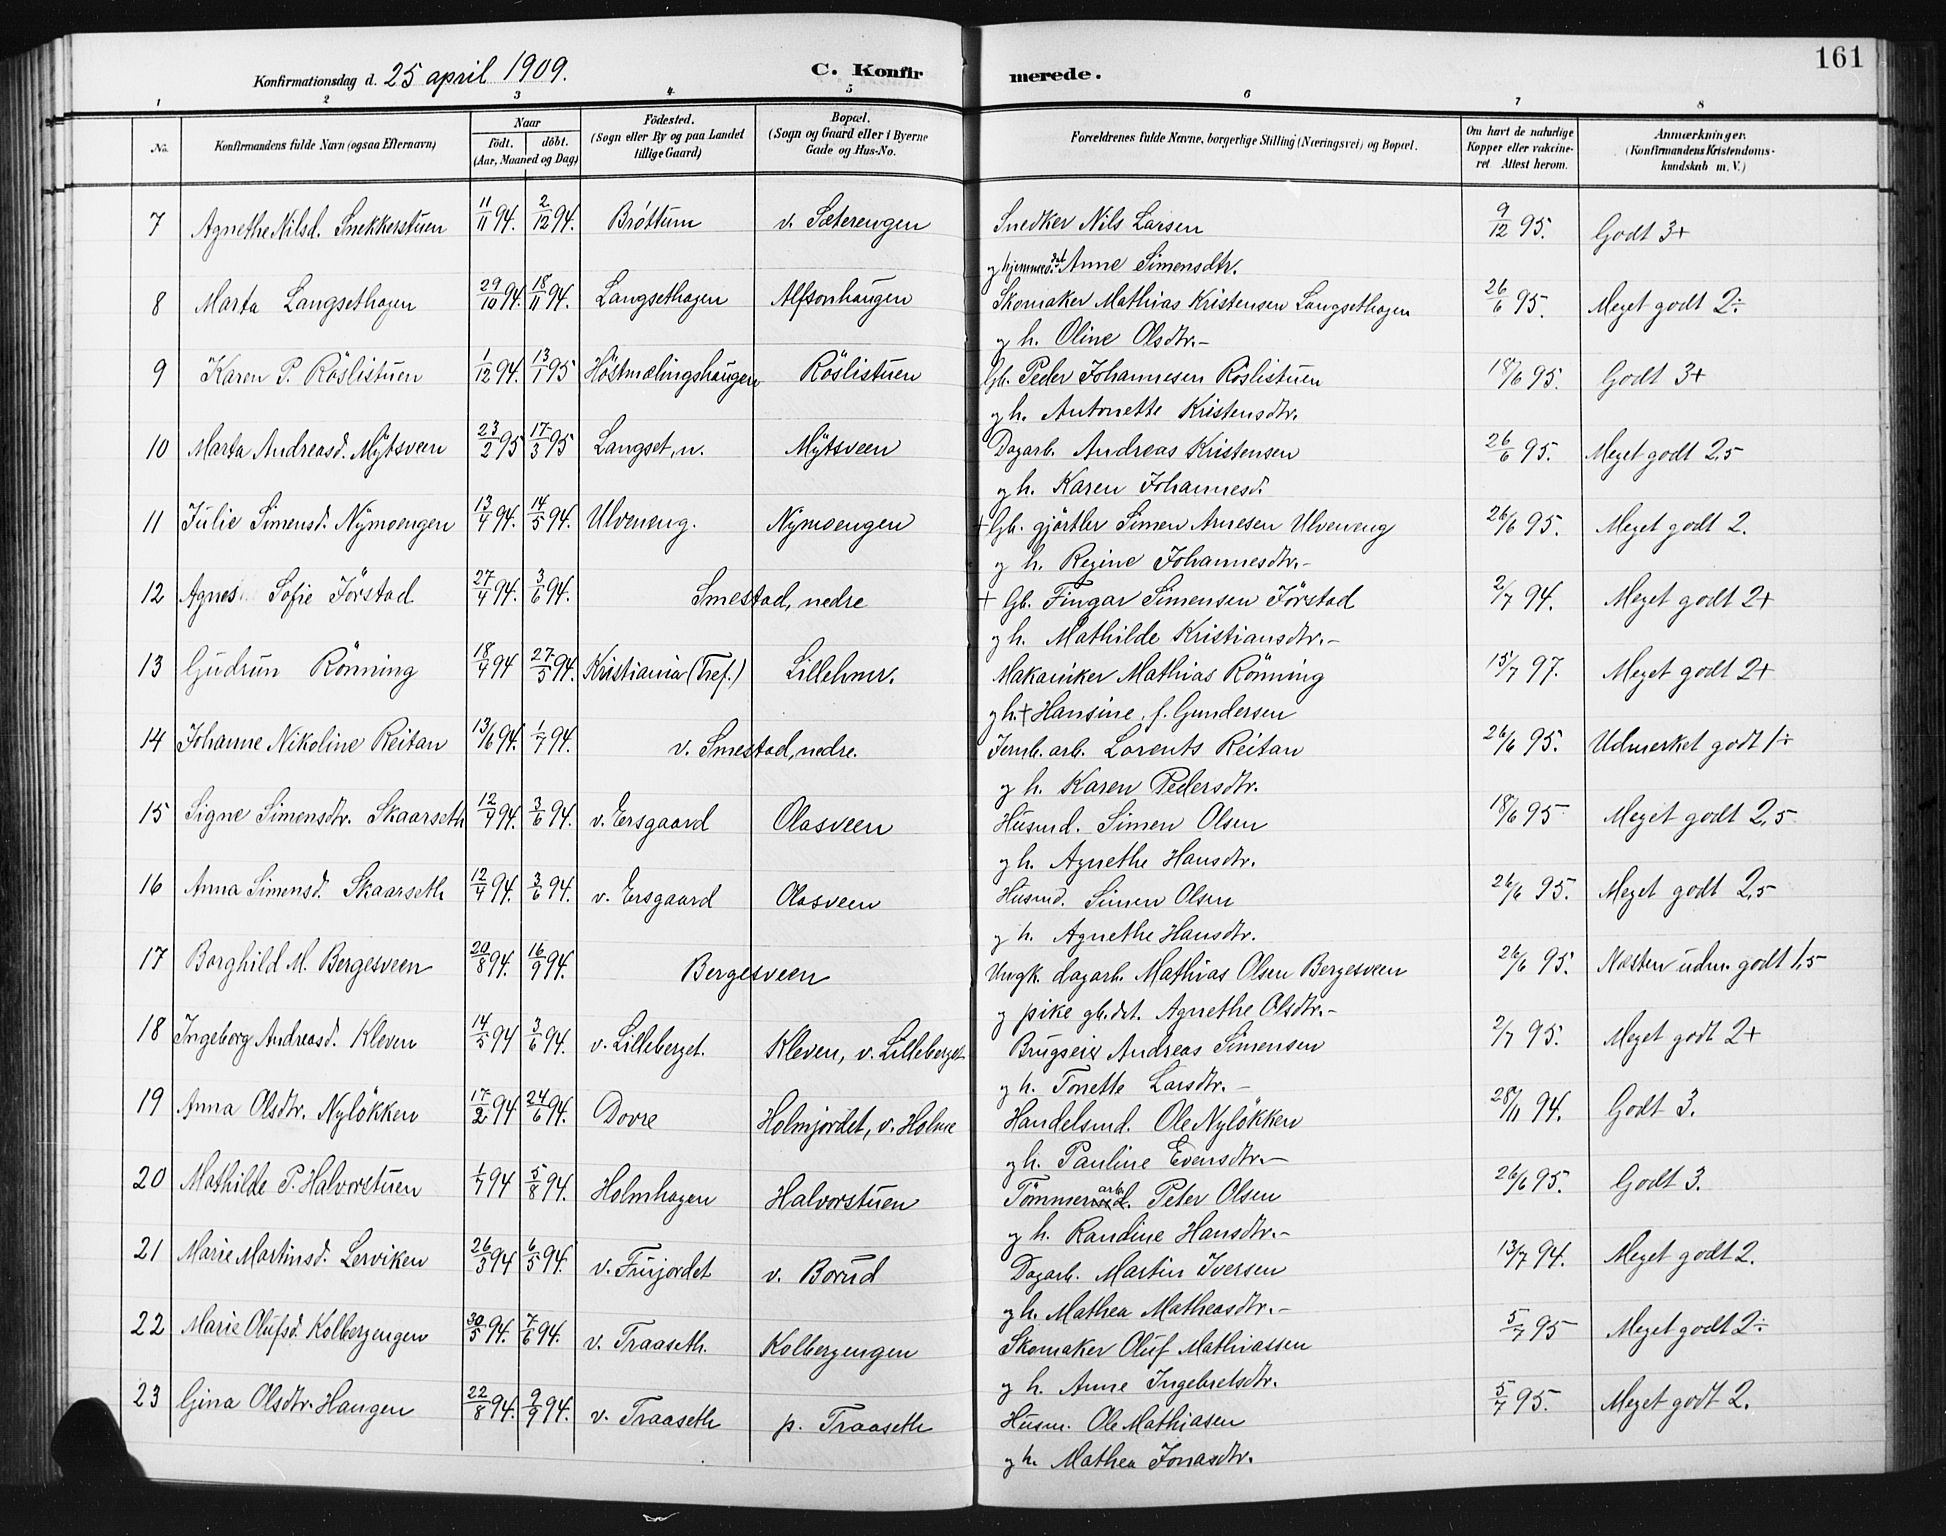 161
Konfirmationsdag d. 25 april 1909. C. Konfir merede.
1 2 3 4 5 6 7 8
No. Konfirmandens fulde Navn (ogsaa Efternavn) Naar Födt. döbt. (Aar, Maaned og Dag) Födested. (Sogn eller By og paa Landet tillige Gaard) Bopæl. (Sogn og Gaard eller i Byerne Gade og Hus-No. Forældrenes fulde Navne, borgerlige Stilling (Næringsvei) og Bopæl. Om havt de naturlige Kopper eller vakcineret Attest herom. Anmærkninger. (Konfirmandens Kristendomskundskab m. V.)
7 Agnethe Nilsd. Snekkerstuen 11/11 94. 2/12 94. Bröttum v. Sæterengen Snedker Nils Larsen 9/12 95. Godt 3+
og hjemmedöt. Anne Simensdtr.
8 Marta Langsethagen 29/10 94. 18/11 94. Langsethagen Alfsonhaugen Skomaker Mathias Kristensen Langsethagen 26/6 95. Meget godt 2÷
og h. Oline Olsdtr.-
9 Karen P. Röslistuen 1/12 94. 13/1 95 Höstmælingshaugen Röslistuen Gb. Peder Johannesen Röslistuen 18/6 95. Godt 3+
og h. Antonette Kristensdtr.
10 Marta Andreasd. Mytsveen 23/2 95 17/3 95 Langset, n. Mytsveen Dagarb. Andreas Kristensen 26/6 95. Meget godt 2,5
og h. Karen Johannesd.
11 Julie Simensd. Nymoengen 13/4 94. 14/5 94. Ulveneng. Nymoengen + Gb. gjörtler Simen Arnesen Ulveneng 26/6 95. Meget godt 2.
og h. Regine Johannesdtr.-
12 Agnes Sofie Jörstad 27/4 94. 3/6 94. Smestad, nedre + Gb. Fingar Simensen Jörstad 2/7 94. Meget godt 2+
og h. Mathilde Kristiansdtr.-
13 Gudrun Rönning 18/4 94 27/5 94. Kristiania (Tref.) Lillehmr. Makaniker Mathias Rönning 15/7 97. Meget godt 2+
og h. + Hansine f. Gundersen
14 Johanne Nikoline Reitan 13/6 94. 1/7 94. v. Smestad, nedre. Jernb. arb. Lorents Reitan 26/6 95. Udmerket godt 1÷
og h. Karen Pedersdtr.
15 Signe Simensdtr. Skaarseth 12/4 94. 3/6 94. v. Ersgaard Olasveen Husmd. Simen Olsen 18/6 95 Meget godt 2,5
og h. Agnethe Hansdtr.
16 Anna Simensd. Skaarseth 12/4 94. 3/6 94. v. Ersgaard Olasveen Husmd. Simen Olsen 26/6 95. Meget godt 2,5
og h. Agnethe Hansdtr.
17 Borghild M. Bergesveen 20/8 94. 16/9 94. Bergesveen Ungk. dagarb. Mathias Olsen Bergesveen 26/6 95. Næsten udm. godt 1,5
og pike gb.dt. Agnethe Olsdtr.-
18 Ingeborg Andreasd. Kleven 14/5 94 3/6 94. v. Lilleberget. Kleven, v. Lilleberget Brugseier Andreas Simensen 2/7 95. Meget godt 2+
og h. Tonette Larsdtr. -
19 Anna Olsdtr. Nylökken 17/2 94 24/6 94. Dovre Holmjordet, v. Holme Handelsmd. Ole Nylökken 28/11 94. Godt 3.
og h. Pauline Evensdtr.-
20 Mathilde P. Halvorstuen 1/7 94 5/8 94. Holmhagen Halvorstuen Tömmerarb. Peter Olsen 26/6 95. Godt 3.
og h. Randine Hansdtr.-
21 Marie Martinsd. Lerviken 26/3 94 6/5 94. v. Furjordet v. Borud Dagarb. Martin Iversen 13/7 94. Meget godt 2.
og h. Mathea Matheasdtr.-
22 Marie Olufsd. Kolbergengen 30/5 94. 7/6 94. v. Traaseth. Kolbergengen Skomaker Oluf Mathiassen 5/7 95 Meget godt 2÷
og h. Anne Ingebretsdtr.
23 Gina Olsdtr. Haugen 22/8 94. 9/9 94. v. Traaseth p. Traaseth Husm. Ole Mathiasen 5/7 95. Meget godt 2.
og h. Mathea Jonasdtr.